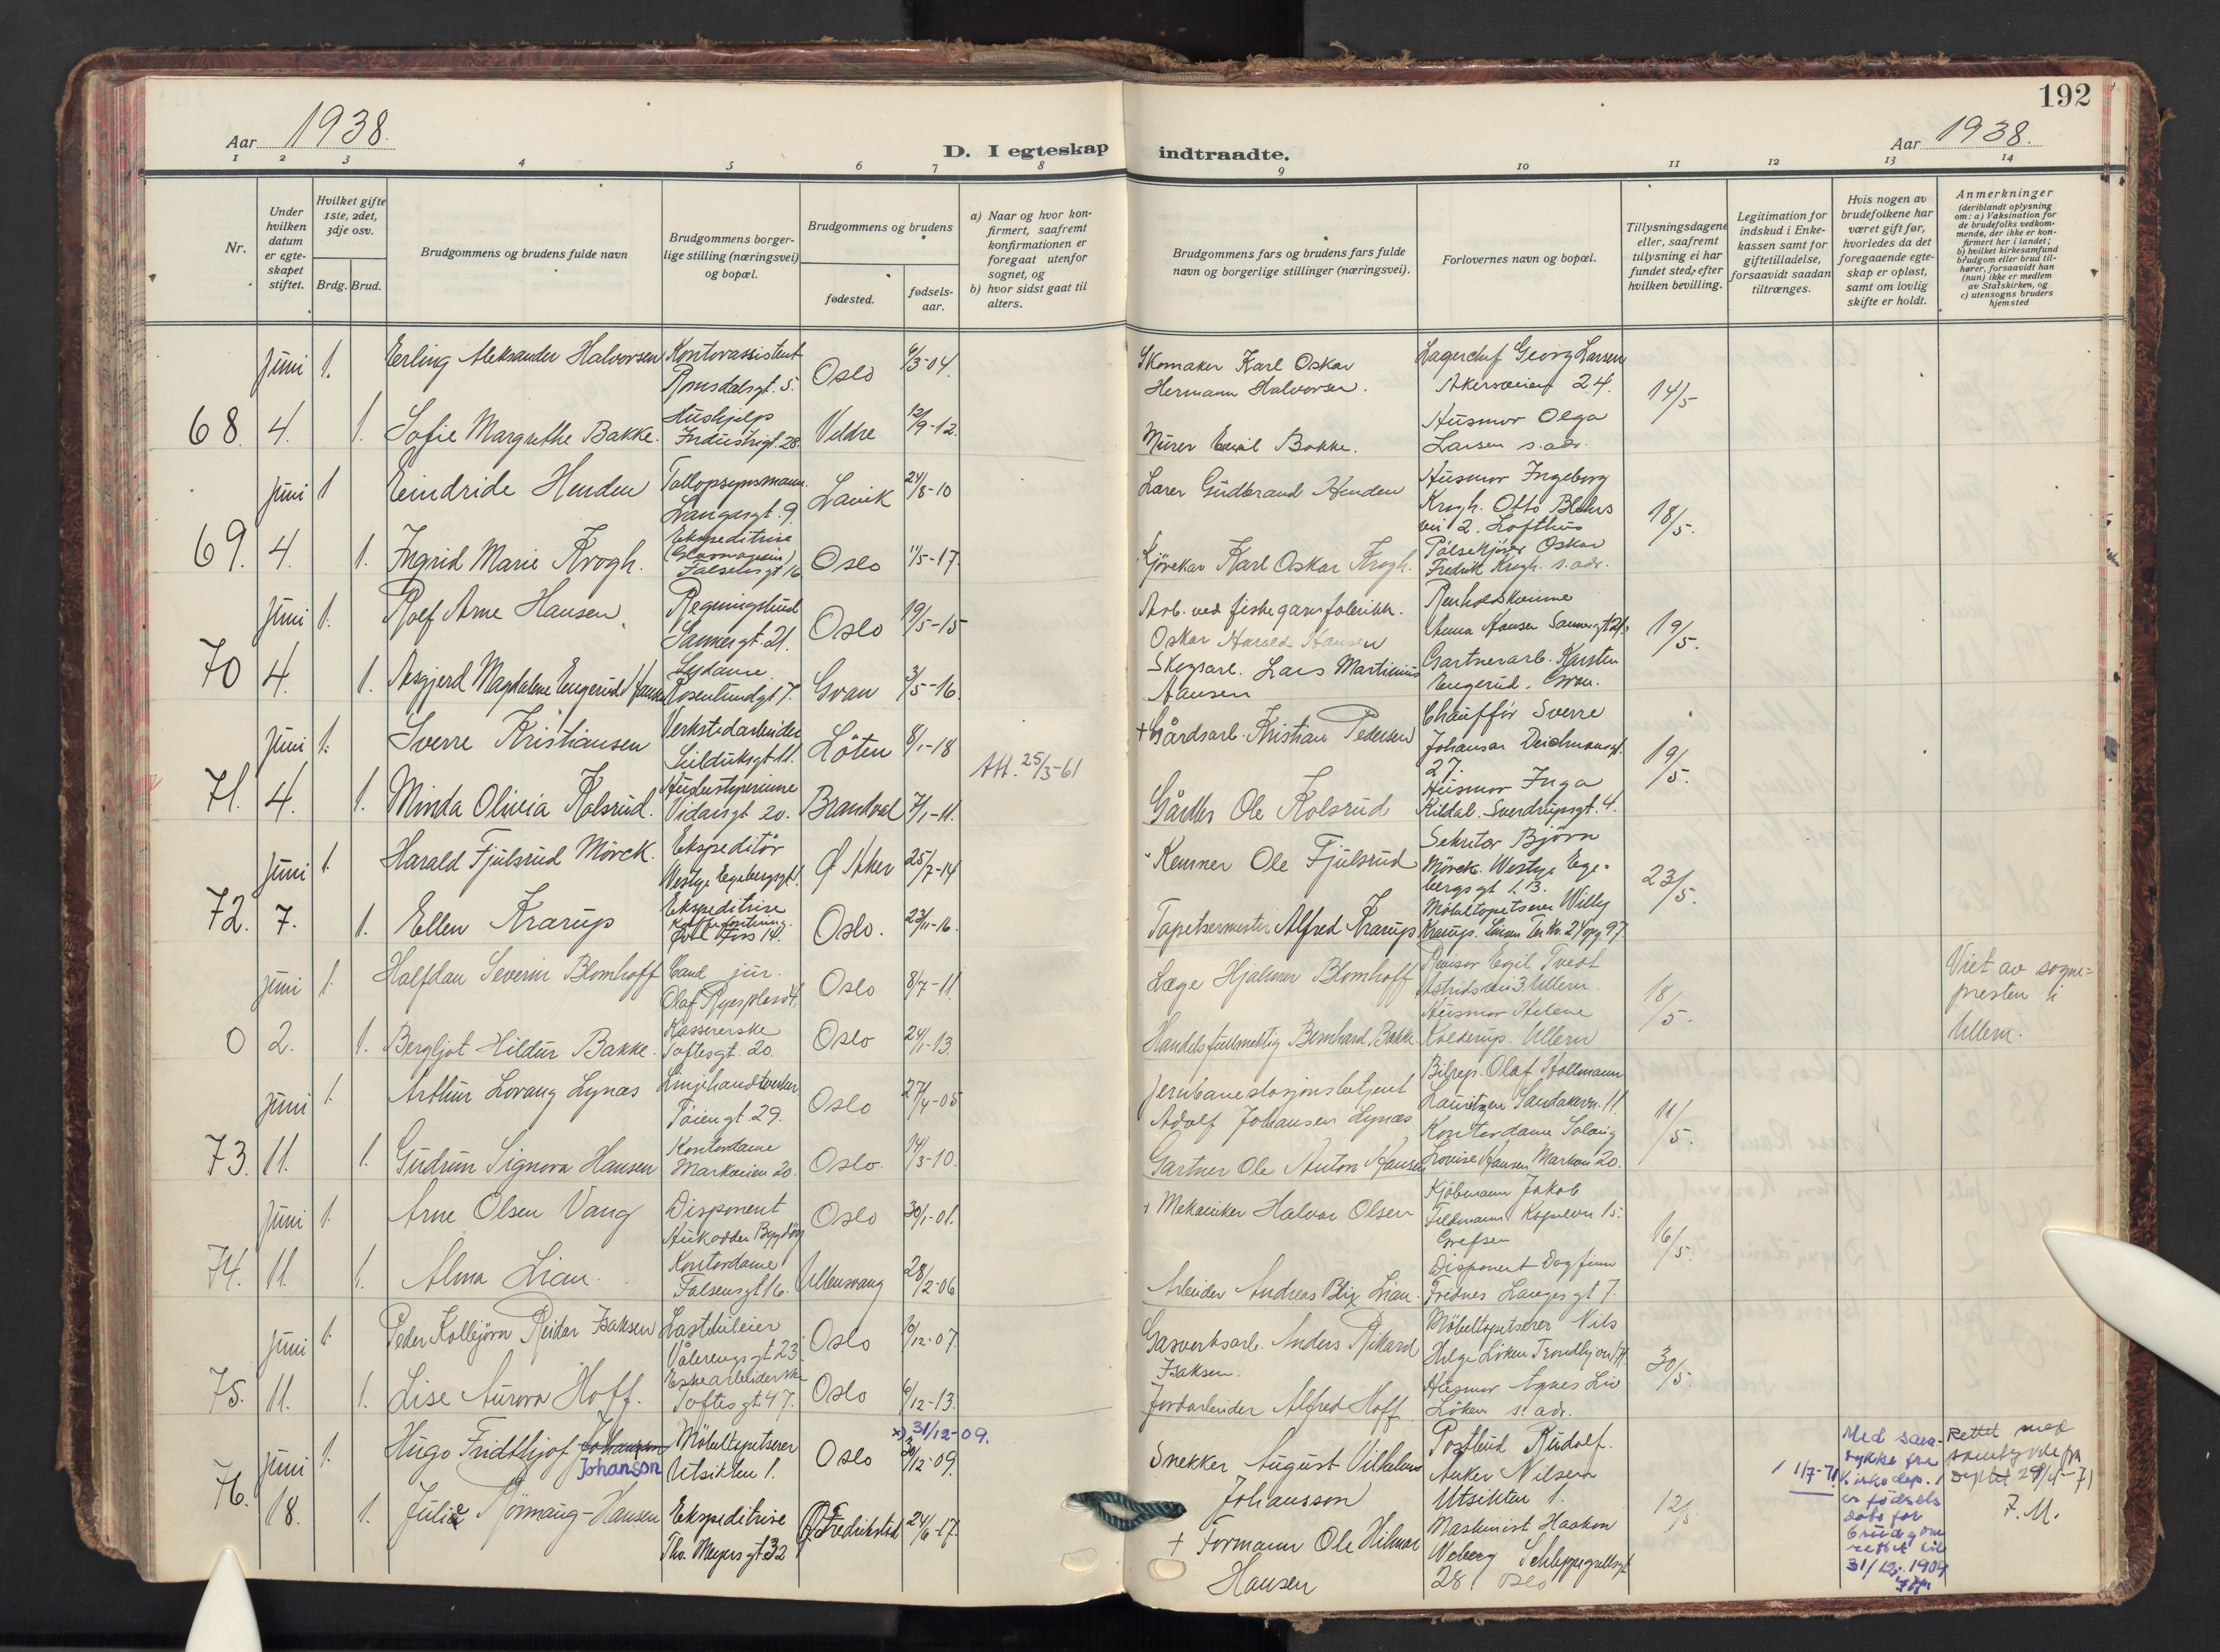 192
Aar 1938.
D. I egteskap
indtraadte.
Aar 1938.
1 2 3 4 5 6 7 8 9 10 11 12 13 14
Nr.
Under hvilken datum er egteskapet stiftet.
Hvilket gifte 1ste, 2det, 3dje osv.
Brdg. Brud.
Brudgommens og brudens fulde navn
Brudgommens borgerlige stilling (næringsvei) og bopæl.
Brudgommens og brudens
fødested.
fødselsaar.
a) Naar og hvor konfirmert, saafremt konfirmationen er foregaat utenfor sognet, og
b) hvor sidst gaat til alters.
Brudgommens fars og brudens fars fulde navn og borgerlige stillinger (næringsvei).
Forlovernes navn og bopæl.
Tillysningsdagene eller, saafremt tillysning ei har fundet sted, efter hvilken bevilling.
Legitimation for indskud i Enkekassen samt for giftetilladelse, forsaavidt saadan tiltrænges.
Hvis nogen av brudefolkene har været gift før, hvorledes da det foregaaende egteskap er opløst, samt om lovlig skifte er holdt.
Anmerkninger
(deriblandt oplysning om: a) Vaksination for de brudefolks vedkommende, der ikke er konfirmert her i landet; b) hvilket kirkesamfund brudgom eller brud tilhører, forsaavidt han (hun) ikke er medlem av Statskirken, og c) utensogns bruders hjemsted
Juni 1. Erling Aleksander Halvorsen Kontorassistent Romsdalsgt. 5. Oslo 6/3-04. Skomaker Karl Oskar Hermann Halvorsen. Lagerchef Georg Larsen Akersveien 24. 14/5
68. 4. 1. Sofie Margrethe Bakke. Hushjelp Industrigt. 28. Veldre 12/9-12. Murer Emil Bakke. Husmor Olga Larsen s. adr.
Juni 1 Eindride Henden Tollopsynsmann. Langesgt. 9. Lavik 24/8-10 Lærer Gudbrand Henden Husmor Ingeborg Krogh. Otto Blehrs vei 2. Lofthus 18/5.
69. 4. 1. Ingrid Marie Krogh. Ekspeditrise Falsensgt 16 Oslo 11/5-17. Kjørekar Karl Oskar Krogh. Oskar Fredrik Krogh. s. adr.
Juni 1. Rolf Arne Hansen. Regningsbud Sannergt. 21. Oslo 19/5-15 Arb. ved fiskegarnfabrikk. Oskar Harald Hansen Renholdskvinne Anna Hansen Sannergt 21. 19/5.
70 4. 1. Asgjerd Magdalene Engerud Hansen Sydame. Rosenlundgt 7. Gran 3/5-16. Skogsarb. Lars Martinius Hansen Gartnerarb. Karsten Engerud. Gran.
Juni 1. Sverre Kristiansen Verkstedarbeider Løten 8/1-18 Att. 25/5-61 + Gårdsarb. Kristian Pedersen Chauffør Sverre Johansen Deichmansgt. 27. 19/5.
71. 4. 1. Minda Olivia Kolsrud. Vidarsgt 20. Brandval 7/1-11. Gårdbr Ole Kolsrud Husmor Inga Kildal. Sverdrupsgt. 4.
Juni 1. Harald Fjulsrud Mørck. Ekspeditør Westye Egebergsgt 1. Ø Aker 25/7-14 Kemner Ole Fjulsrud Sekretær Bjørn Mørck. Westye Egebergsgt 1 B. 23/5.
72. 7. 1. Ellen Krarup Ekspeditrise Oslo. 23/11-16. Tapetsermester Alfred Krarup Møbeltapetserer Willy Krarup.
Juni 1. Halfdan Severin Blomhoff Cand jur. Olaf Ryesplass 4. Oslo 8/7-11. Læge Hjalmar Blomhoff Revisor Egil Tvedt Astridsvei 3. Ullern. 18/5. Viet av sogne=presten i Ullern.
0 2. 1. Bergljot Hildur Bakke. Kassererske Toftesgt. 20. Oslo 24/1-13. Handelsfullmektig Bernhard Bakke. Husmor Helene Kolderup. Ullern
Juni 1. Arthur Lovang Lynæs Linjehandverker Tøiengt. 29. Oslo 27/4-05 Jernbanestasjonsbetjent Adolf Johansen Lynæs Bilrep. Olaf Hollmann Lauritzen Sandakervn. 11. 11/5.
73. 11. 1. Gudrun Signora Hansen Kontordame Markveien 20. Oslo. 14/3-10. Gartner Ole Anton Hansen Kontordame Solveig Lovise Hansen Markvn 20.
Juni 1. Arne Olsen Vang Disponent Oslo 30/1-01. + Mekaniker Halvor Olsen Kjøbmann Jakob Feldmann. Kapellvn 15. Grefsen 16/5.
74. 11. 1. Alma Lian. Kontordame Falsensgt 16. Ullensvang 28/2-06 Arbeider Andreas Blix Lian. Disponent Dagfinn Fridnes Langesgt 7.
Juni 1. Peder Kollbjørn Reidar Isaksen Lastebileier Vålerengsgt 23. Oslo 6/12-07. Gasverksarb. Anders Rikard Isaksen. Møbeltapetserer Nils Helge Løken 30/5.
75. 11. 1. Lise Aurora Hoff. Eskearbeiderske Toftesgt 47. Oslo 6/12-13. Jordarbeider Alfred Hoff. Husmor Agnes Liv Løken s. adr.
x) 31/12-09.
Juni 1. Hugo Fridthjof Johansson Møbeltapetserer Utsikten 1. Oslo 30/12-09. Snekker August Vilhelm Johansson Postbud Rudolf Anker Nilsen Utsikten 1. 12/5
Johanson
76. 18. 1. Julie Rørmaug-Hansen Ekspeditrise Tho. Meyersgt 32 Fredrikstad 24/6-17. + Formann Ole Hilmar Hansen Maskinist Haakon Weberg Schleppegrellsgt 28. Oslo
1/7-71 Med samtykke fra kirkedep. er fødselsdato for brudgom rettet til 31/12. 1909
Rettet med samtykke fra Dept. 29/4-71 F. M.